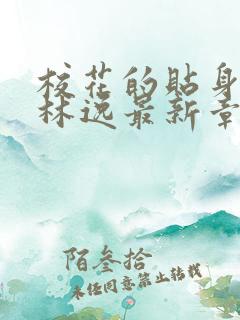 校花的贴身
林逸最新章
陌叁拾
未经同意禁止转载